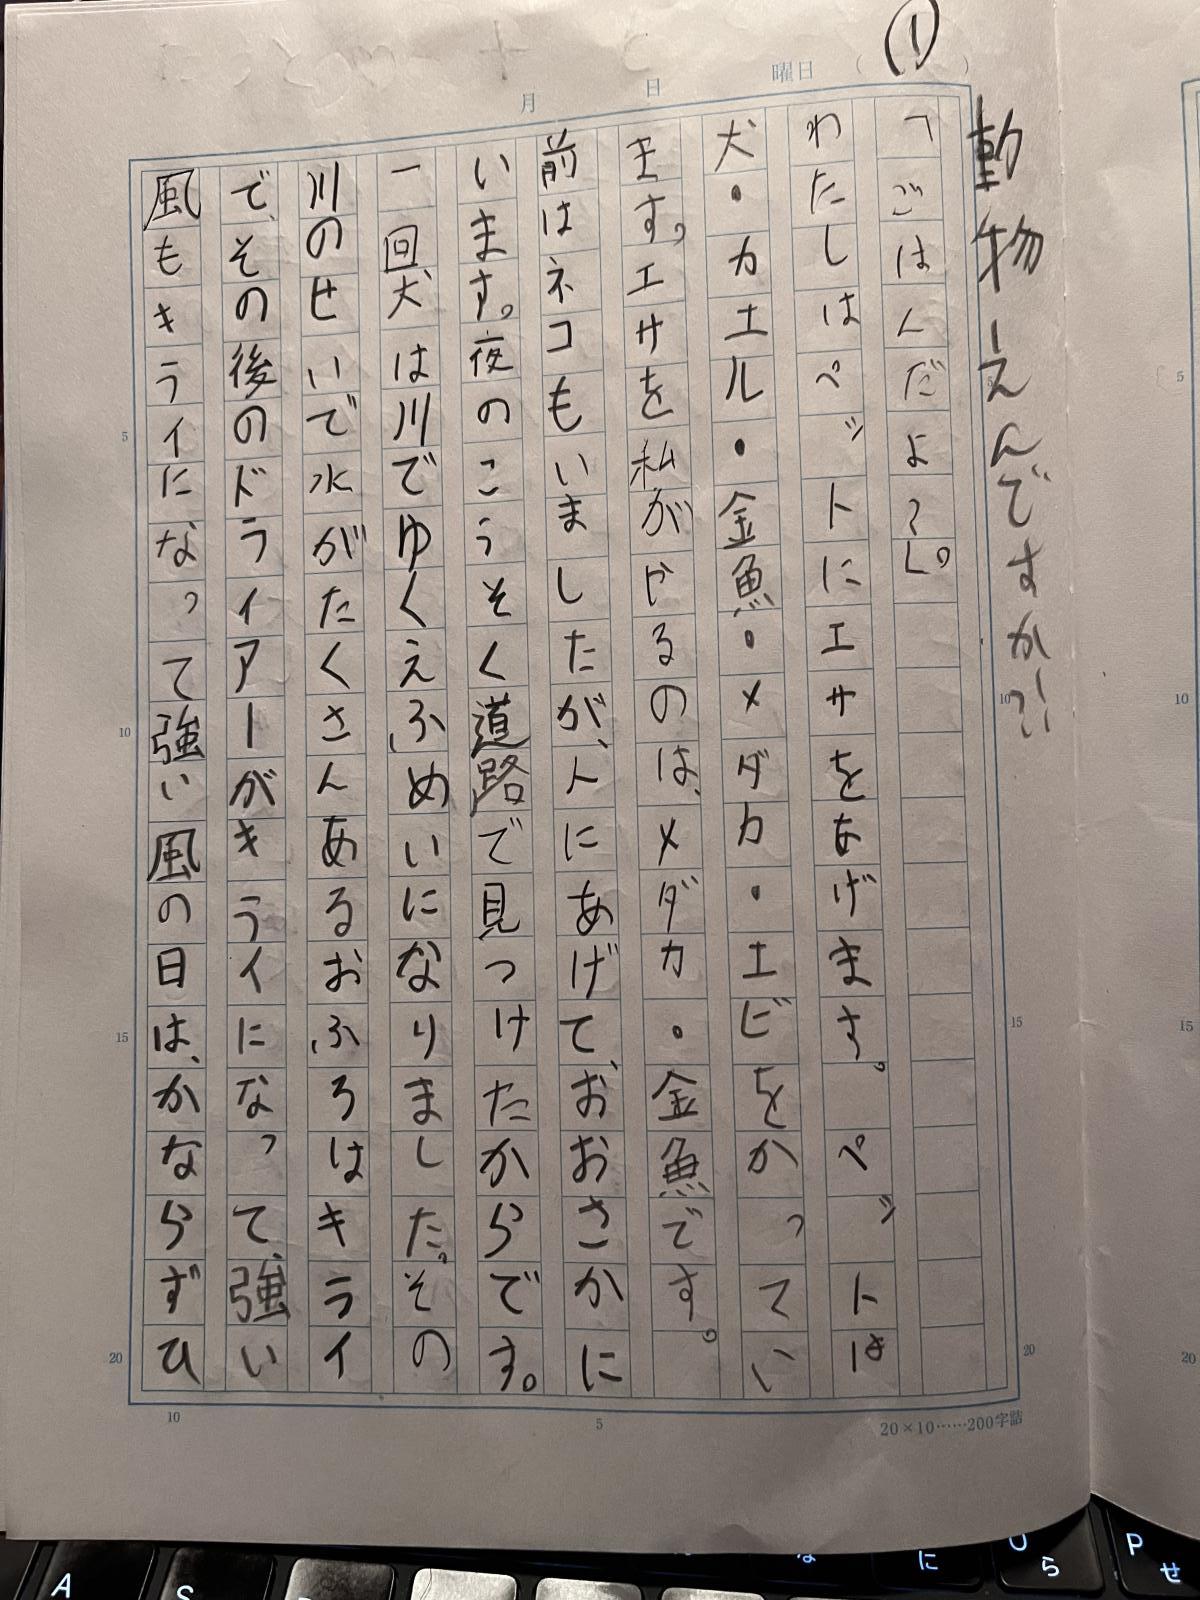 ①
月 日 曜日 ( )
動物えんですか!?
「ごはんだよ〜」。
わたしはペットにエサをあげます。ペットは
犬・カエル・金魚・メダカ・エビをかってい
ます。エサを私がやるのは、メダカ・金魚です。
前はネコもいましたが、人にあげて、おおさかに
います。夜のこうそく道路で見つけたからです。
一回犬は川でゆくえふめいになりました。その
川のせいで水がたくさんあるおふろはキライ
で、その後のドライアーがキライになって、強い
風もキライになって強い風の日は、かならずひ
5
10
15
20
5
10
15
20
5
10
15
20
10
5
20×10……200字詰
A
S
な
に
O
ら
P
せ